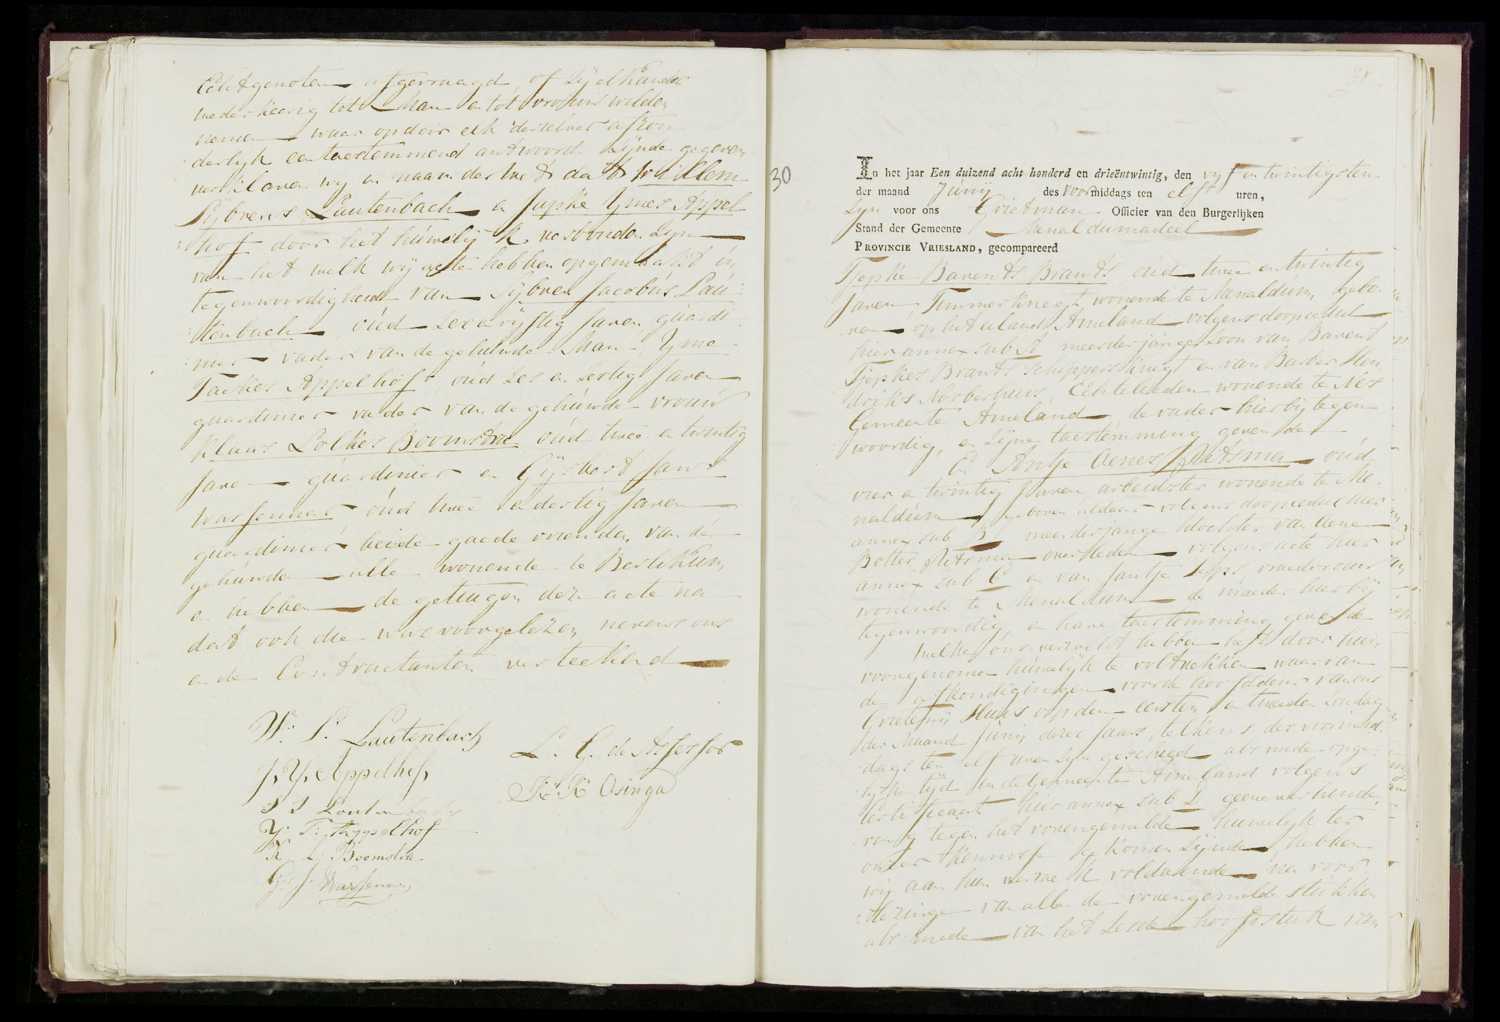 Echtgenoten afgevraagd of zij elkander
wederkeerig tot Man en tot vrouw wilden
nemen waar op door elk derzelver afzon
derlijk een toestemmend antwoord zijnde gegeven
verklaren wij in naam der wet dat Willem
Sijbrens Lautenbach en Jupke Ymes Appel
hof door het huwelijk verbonden zijn
van het welk wij acte hebben opgemaakt in
tegenwoordigheid van Sijbren Jacobus Lau
tenbach oud zesenvijftig Jaren guardi
nier vader van de gehuwde Man Yme
Taekes Appelhof oud zes en zestig Jaren
guardinier vader van de gehuwde vrouw
Klaas Lolkes Boomstra oud twee en twintig
Jaren guardinier en Gijsbert Jans
Wassenaar oud twee en dertig Jaren
guardinier beide goede vrienden van de
gehuwden alle wonende te Berlikum
en hebben de getuigen deze acte na
dat ook die was voorgelezen nevens ons
en de Contractanten verteekend
W. S. Lautenbach
J. Y. Appelhof
S J Lautenbach
Y. T. Appelhof
K. L. Boomstra
G. J. Wassenaar
L. C. de Assessor
K. K. Osinga
30
In het jaar Een duizend acht honderd en drieëntwintig, den vijf en twintigsten
der maand Junij des voormiddags ten elf uren,
zijn voor ons Grietman Officier van den Burgerlijken
Stand der Gemeente Menaldumadeel
PROVINCIE VRIESLAND, gecompareerd
Tjepke Barends Brands oud twee en twintig
Jaren Timmerknegt wonende te Menaldum, gebo
ren op het eiland Ameland volgens doopcedul
hier annex sub A meerderjarige Zoon van Barend
Tjepkes Brands Schippersknegt en van Hen
driks Echtelieden wonende te Nes
Gemeente Ameland, de vader hierbij tegen
woordig, en zijne toestemming gevende
En Antje Aenes oud
vier en twintig Jaren arbeidster wonende te Me
naldum geboren aldaar volgens doopcedul hier
annex sub B meerderjarige dochter van Aene
overleden volgens acte hier
annex sub C en van Jantje vroedvrouw
wonende te Menaldum de moeder hierbij
tegenwoordig, en hare toestemming gevende
welke ons verzocht hebben het door hun
voorgenomen huwelijk te voltrekken waarvan
de afkondigingen voor de hoofddeur van ons
Grietenij Huis op den eersten en tweeden Zondag
der Maand Junij dezes Jaars, telkens des voormid
dags ten elf uren zijn geschied als mede opge
lijke tijd in de Gemeente Ameland volgens
Certificaat hier annex sub D geene verhinde
ring tegen het voorgemelde huwelijk ter
onzer kennisse gekomen zijnde hebben
wij aan hun verzoek voldaan na voor
lezinge van alle de voorgemelde stukken
als mede van het zesde hoofdstuk van